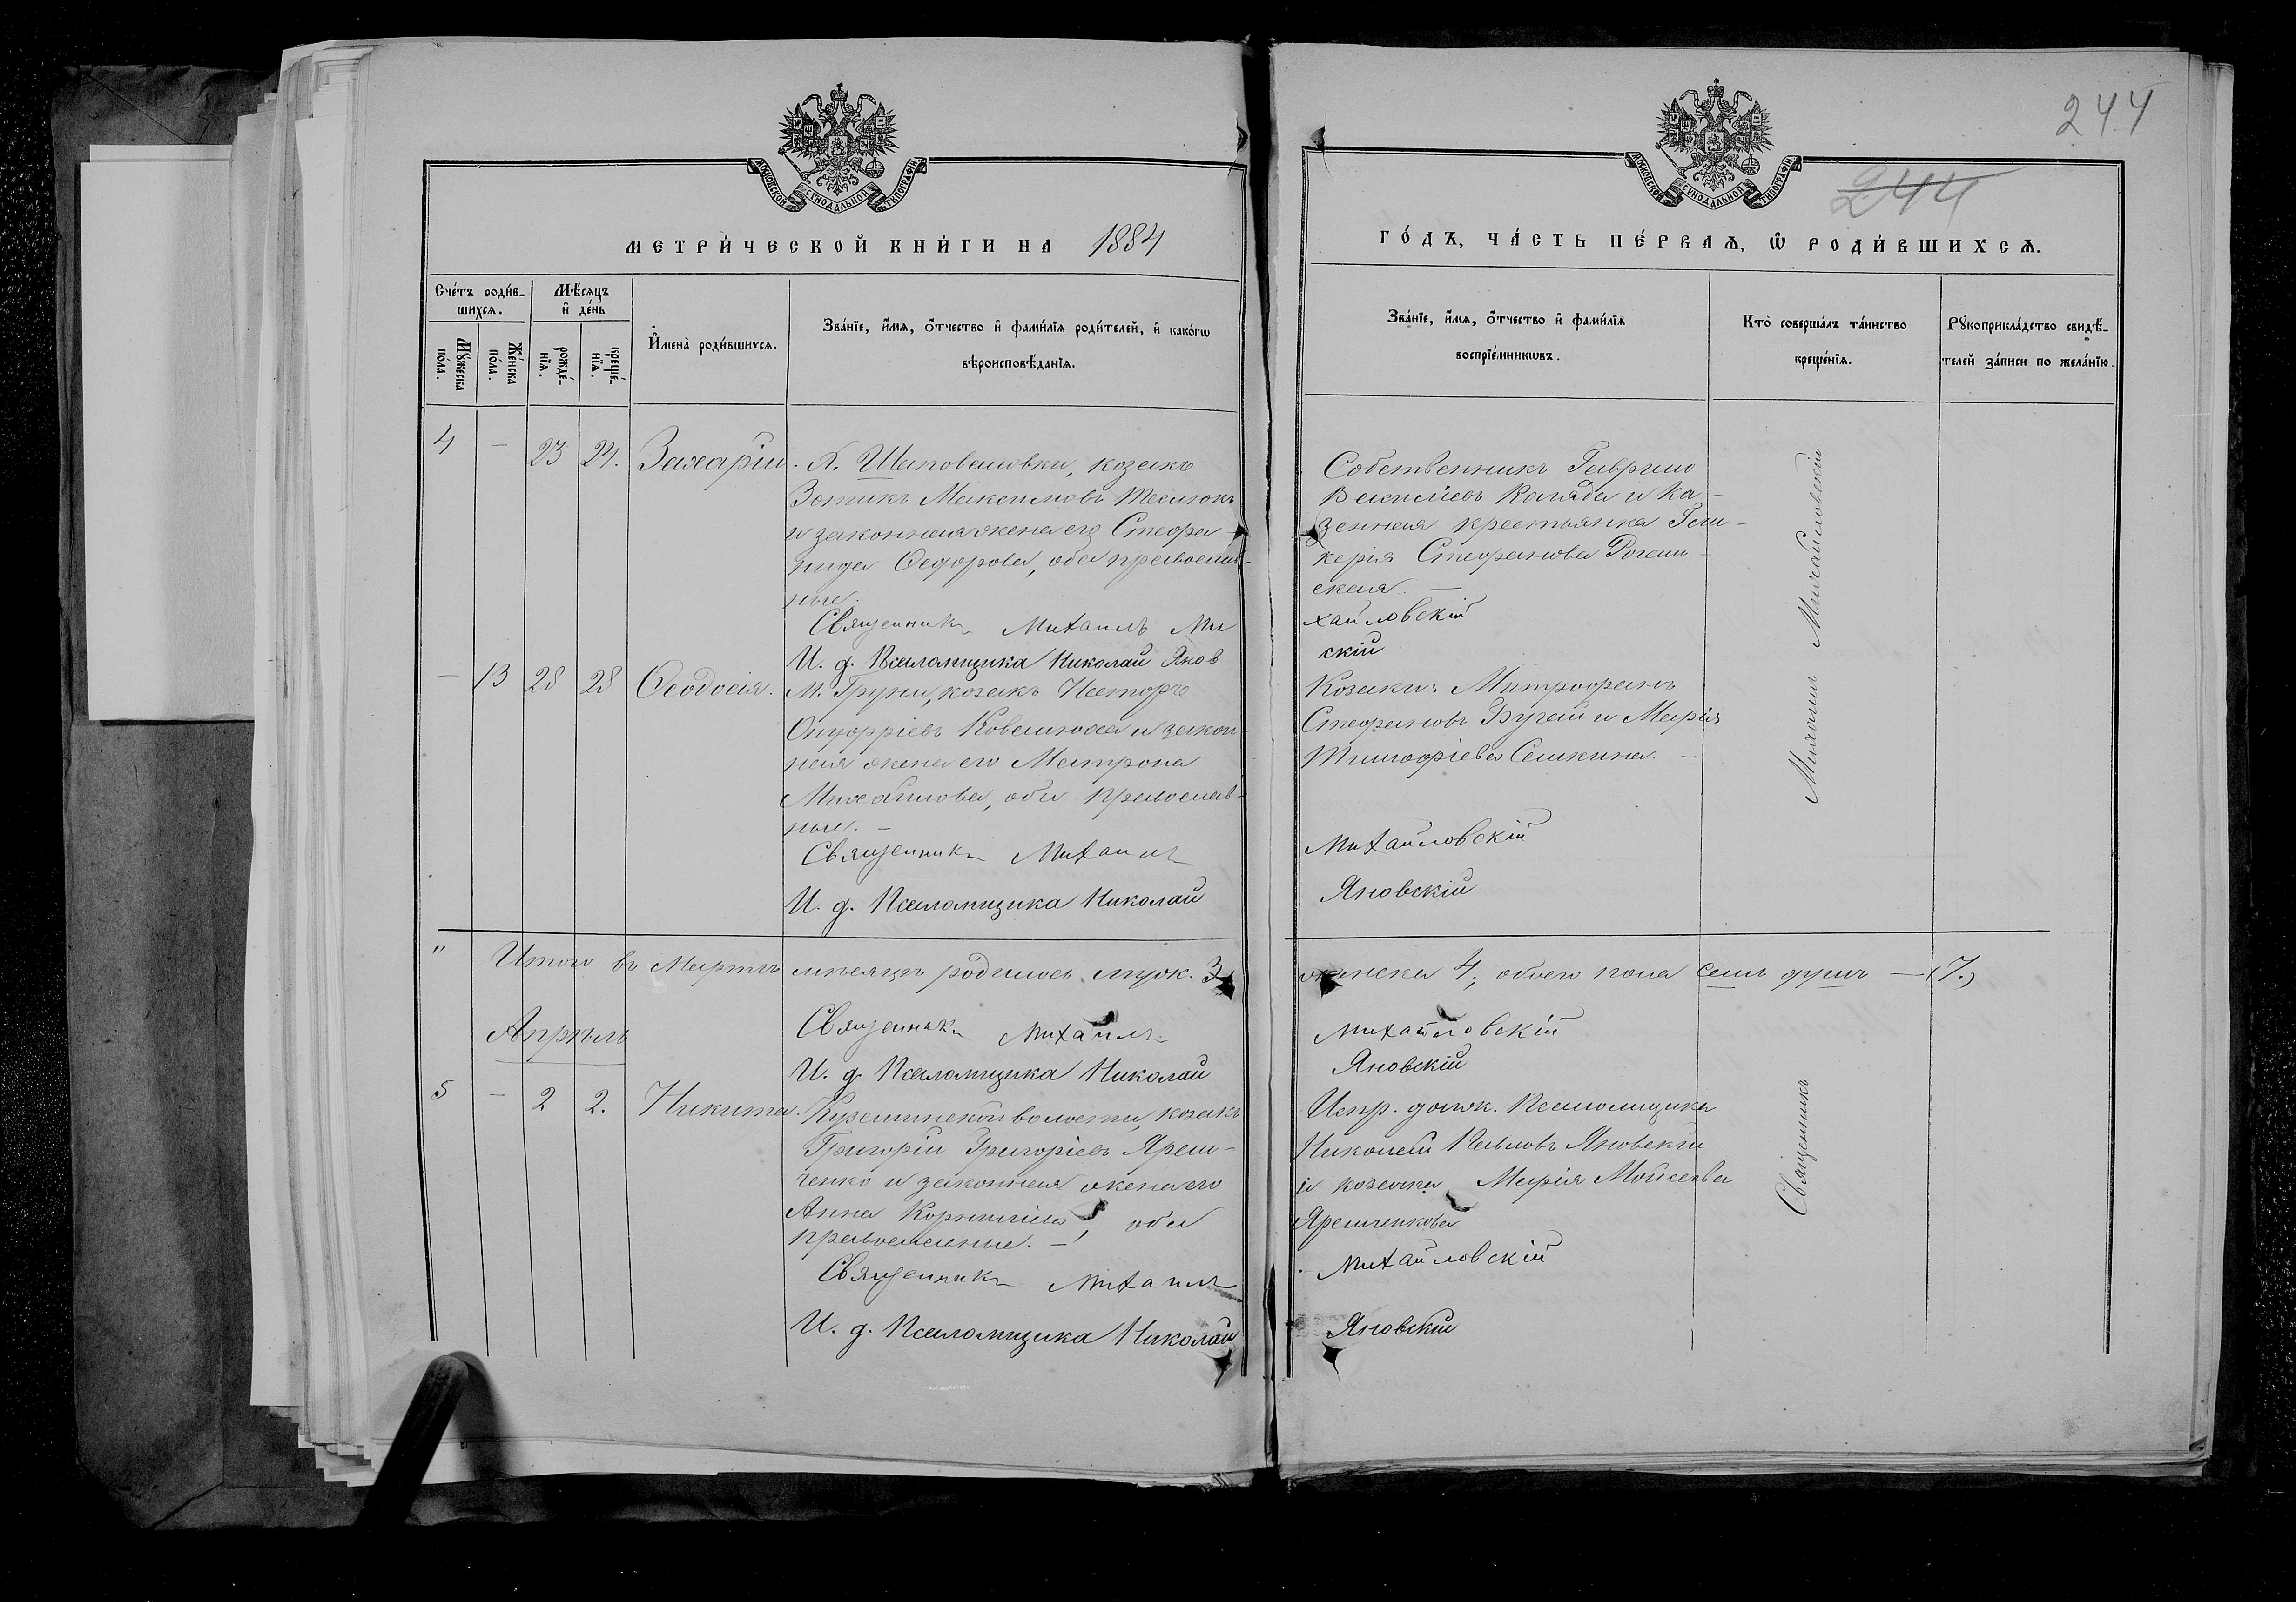 244
244
МОСКОВСКОЙ СУНОДАЛЬНОЙ ТУПОГРАФІИ
МОСКОВСКОЙ СУНОДАЛЬНОЙ ТУПОГРАФІИ
МЕТРИ́ЧЕСКОЙ КНИ́ГИ НА 1884
ГО́ДЪ, ЧА́СТЬ ПЕ́РВАѦ, Ѡ҆ РОДИ́ВШИХСѦ.
Сче́тъ роди́вшихсѧ.
Мꙋ́жеска по́ла.
Же́нска по́ла.
Мѣ́сѧцъ и҆ де́нь
рожде́нїѧ.
креще́нїѧ.
И҆мена̀ роди́вшихсѧ.
Зва́нїе, и҆́мѧ, о҆́тчество и҆ фами́лїѧ роди́телей, и҆ како́гѡ
вѣроисповѣ́данїѧ.
Зва́нїе, и҆́мѧ, о҆́тчество и҆ фами́лїѧ
воспрїе́мникѡвъ.
Кто̀ соверша́лъ та́инство
креще́нїѧ.
Рꙋкоприкла́дство свидѣ́-
телей за́писи по жела́нїю.
4 — 23 24. Захарій.
Х. Шаповаловки, козакъ
Зотикъ Максимовъ
и законная жена его Стефа-
нида Ѳедорова, оба православ-
ные.
Священникъ Михаилъ Ми
И. д. Псаломщика Николай Янов
Собственникъ Гавріилъ
Василіевъ и Ка-
зенная крестьянка Гли-
керія Стефанова
ская. —
хайловскій
скій
— 13 28 28 Ѳеодосія.
М. Груни, козакъ Несторъ
Онуфріевъ и закон-
ная жена его Матрона
Михайлова, оба православ-
ные. —
Священникъ Михаилъ
И. д. Псаломщика Николай
Козакъ Митрофанъ
Стефановъ Бугай и Марія
Тимофіева Сашкина. —
Михайловскій
Яновскій
Михаилъ Михайловскій
" Итого въ Мартѣ мѣсяцѣ родилось муж. 3,
женска 4, обоего пола семь душъ — (7.)
Священникъ Михаилъ
Михайловскій
И. д. Псаломщика Николай
Яновскій
Апрѣль
5 — 2 2. Никита.
волости, козакъ
Григорій Григоріевъ Ярем-
ченко и законная жена его
Анна Корниліева, оба
православные. —
Священникъ Михаилъ
И. д. Псаломщика Николай
Испр. долж. Псаломщика
Николай Павловъ Яновскій
и козачка Марія Мойсеева
Яремченкова
Михайловскій
Яновскій
Священникъ